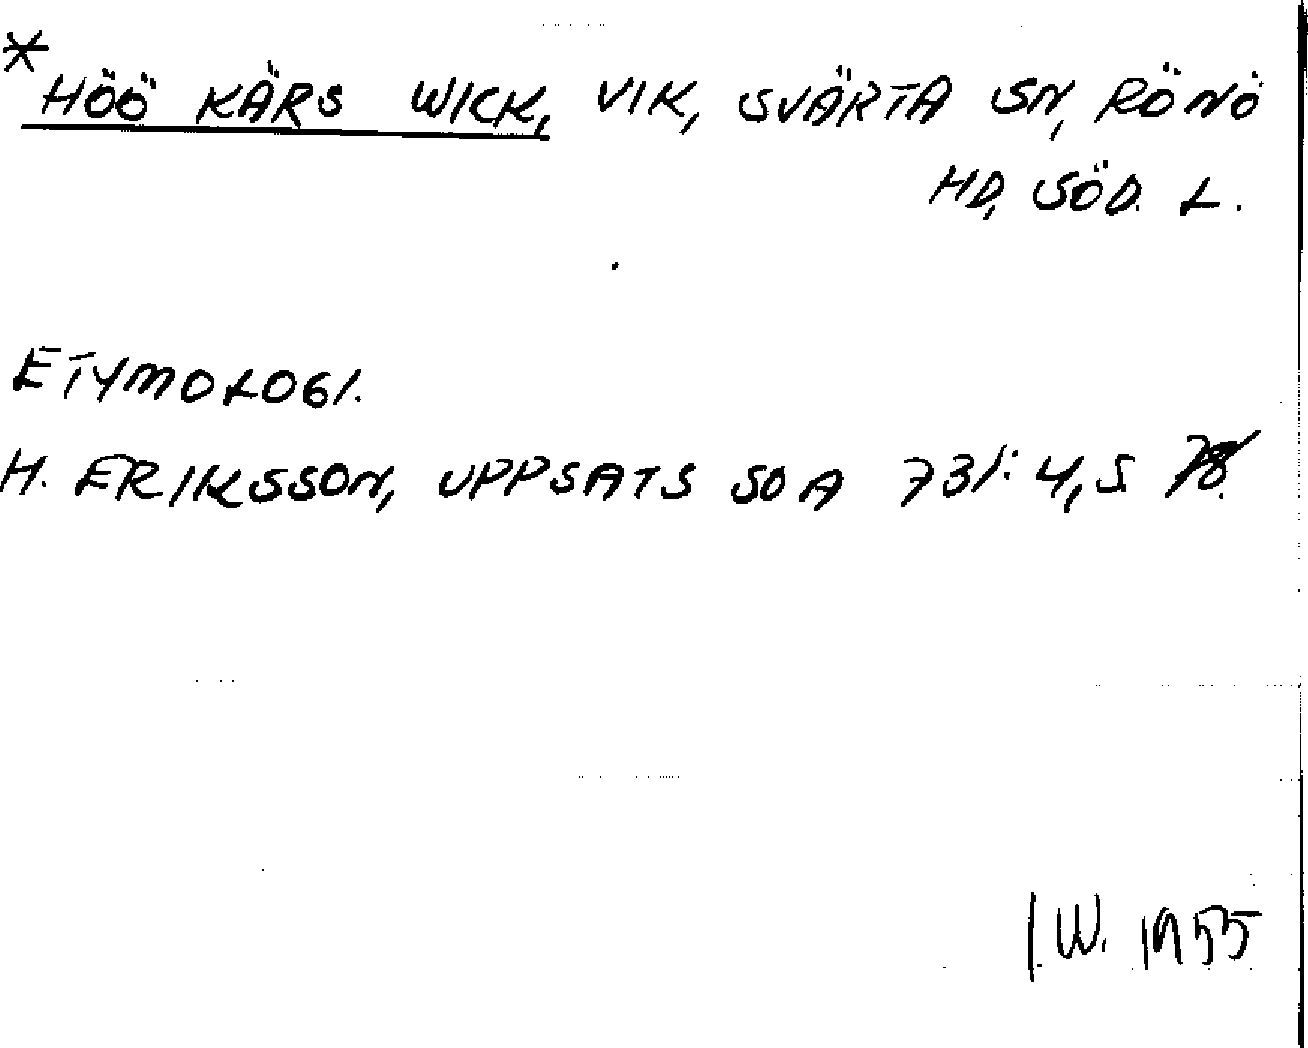 *HÖÖ KÄRS WICK, VIK, SVÄRTA SN, RÖNÖ
HD, SÖD. L.
ETYMOLOGI.
H. ERIKSSON, UPPSATS SOA 731:4, S 78.
I.W. 1955